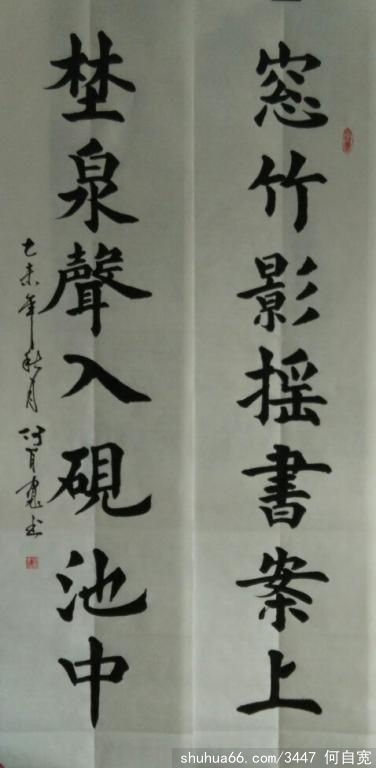 窓竹影摇書案上
埜泉聲入硯池中
乙未年秋月何自寛书
shuhua66.com/3447 何自宽